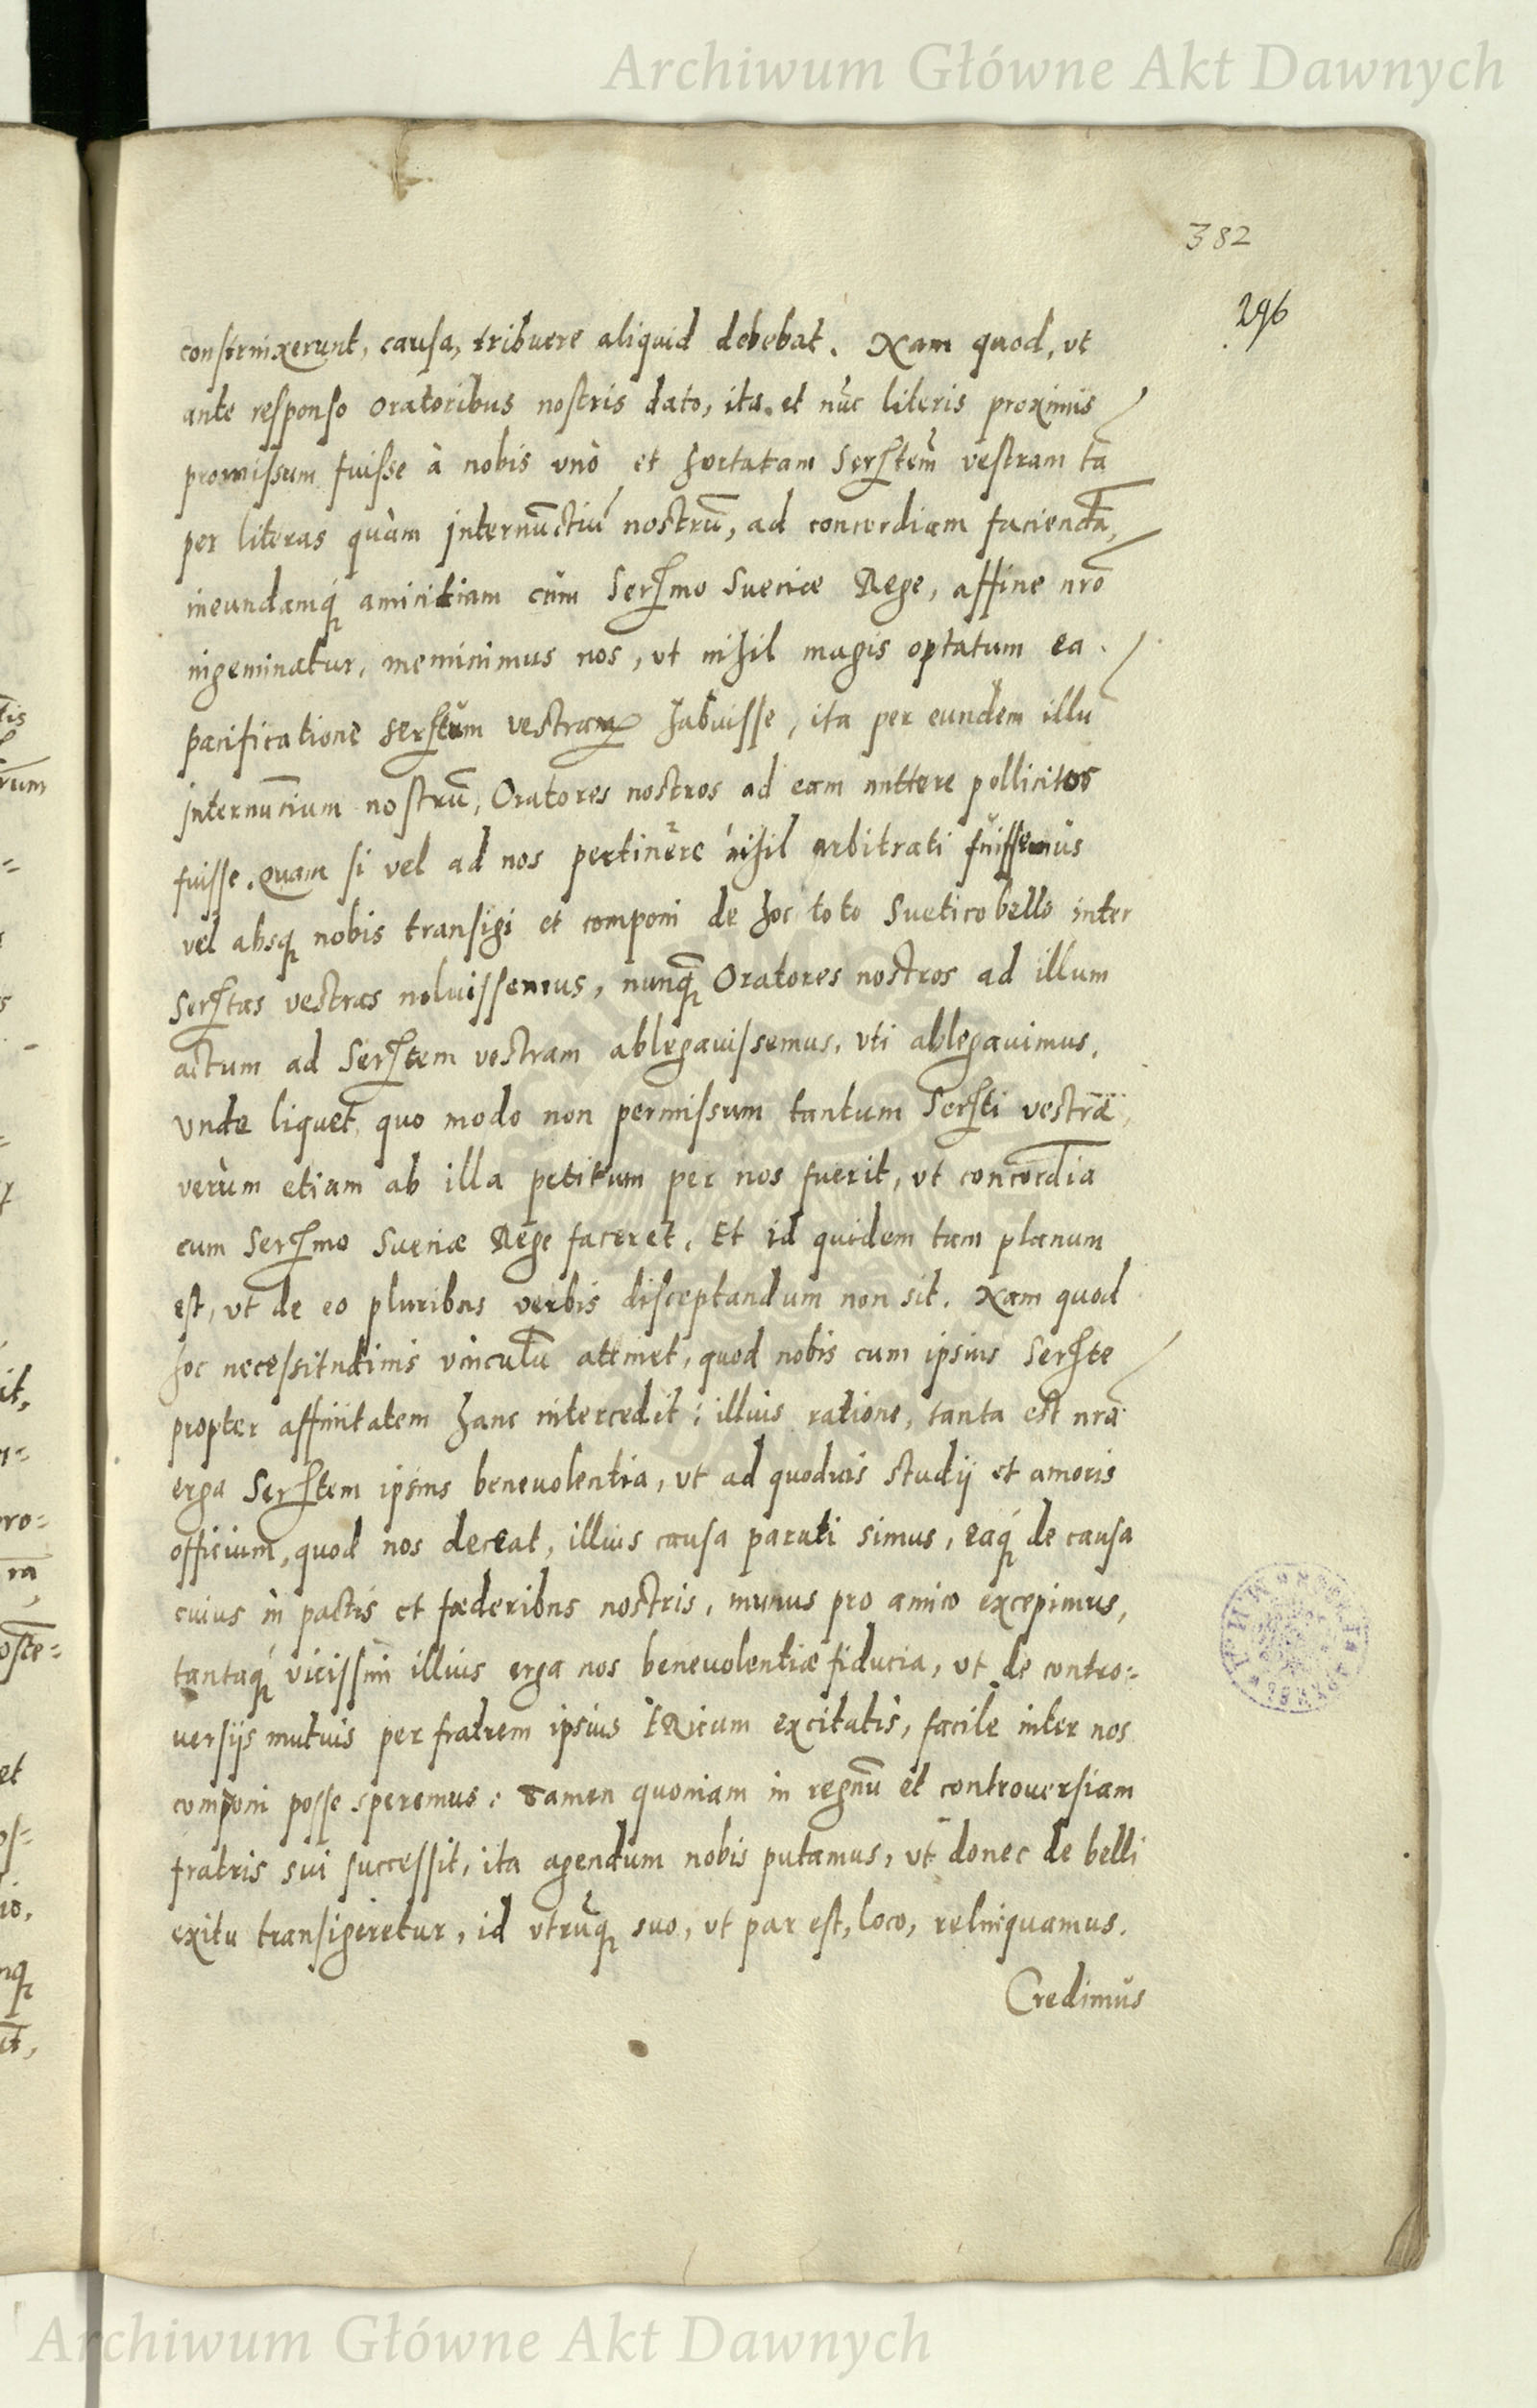 Archiwum Główne Akt Dawnych
382
296
constrinxerunt, causa, tribuere aliquid debebat. Nam quod, ut
ante responso oratoribus nostris dato, ita et nūc literis proximis
promissum fuisse à nobis unò et hortatam Serstem̄ vestram tā
per literas quàm internūctiū nostrū, ad concordiam faciendā,
ineundamq́ amicitiam cùm Sermo Sueciæ Rege, affine nrō
ingeminatur, meminimus nos, ut nihil magis optatum ea
pacificatione Serstem vestram habuisse, ita per eundem illū
internuncium nostrū, Oratores nostros ad eam mittere pollicitos
fuisse. Quam si vel ad nos pertinere nihil arbitrati fuissemus
vel absq nobis transigi et componi de hoc toto Suetico bello inter
Serstas vestras noluissemus, nunq̄ Oratores nostros ad illum
actum ad Serstem vestram ablegauissemus, uti ablegauimus,
Unde liquet quo modo non permissum tantum Sersti vestræ,
verùm etiam ab illa petitum per nos fuerit, ut concordiā
cum Sermo Sueciæ Rege faceret. Et id quidem tam planum
est, ut de eo pluribus verbis disceptandum non sit. Nam quod
hoc necessitudinis vinculū attinet, quod nobis cum ipsius Serste
propter affinitatem hanc intercedit: illius ratione, tanta est nrā
erga Serstem ipsius beneuolentia, ut ad quoduis studij et amoris
officium, quod nos deceat, illius causa parati simus, eaq́ de causa
cuius in pactis et fœderibus nostris, munus pro amico excepimus,
tantaq́ vicissim illius erga nos beneuolentiæ fiducia, ut de contro=
uersijs mutuis per fratrem ipsius ERicum excitatis, facile inter nos
componi posse speremus: tamen quoniam in regnū et controuersiam
fratris sui successit, ita agendum nobis putamus, ut donec de belli
exitu transigeretur, id utrūq suo, ut par est, loco, relinquamus.
Credimus
Archiwum Główne Akt Dawnych